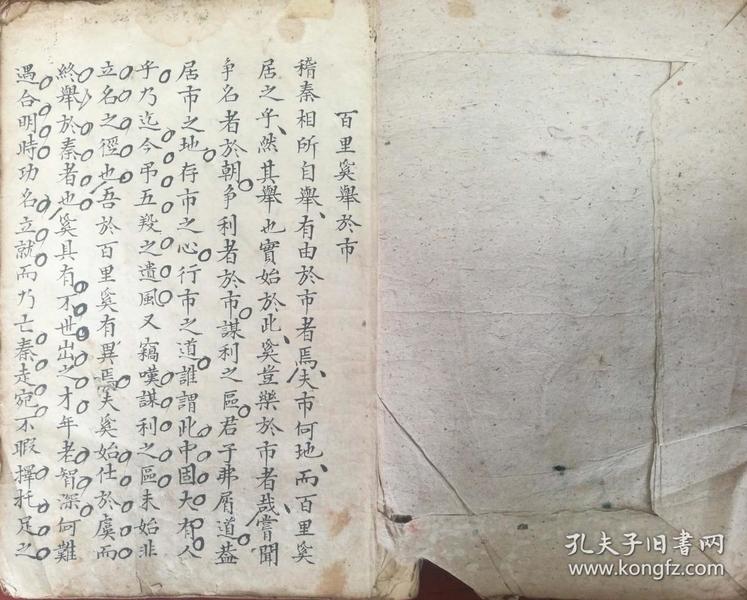 百里奚舉於市
稽秦相所自舉有由於市者焉夫市何地而百里奚
居之乎然其舉也實始於此奚豈樂於市者哉嘗聞
爭名者於朝爭利者於市謀利之區君子弗屑道蓋
居市之地存市之心行市之道誰謂此中固大有人
乎乃迄今吊五羖之遺風又竊嘆謀利之區未始非
立名之徑也吾於百里奚有異焉夫奚始仕於虞而
終舉於秦者也奚具有不世出之才年老智深何難
遇合明時功名立就而乃亡秦走宛不暇擇托足之
孔夫子旧书网
www.kongfz.com